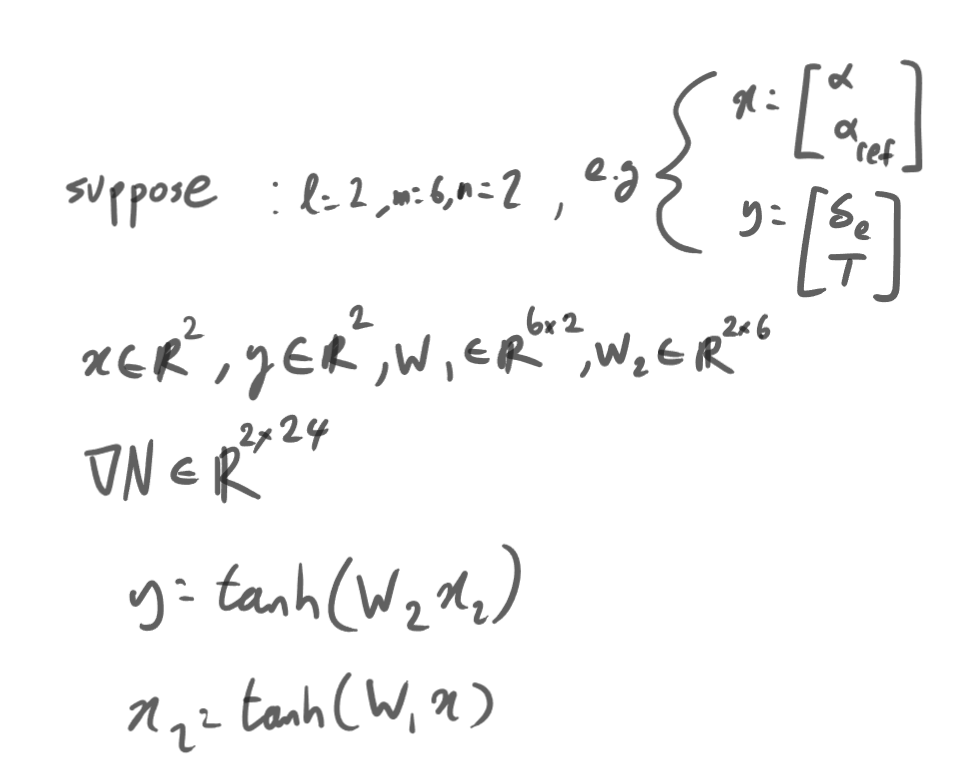 suppose : l=2, m=6, n=2, e.g { x = [α α_ref]
y = [δ_e T]
x ∈ ℝ², y ∈ ℝ², W₁ ∈ ℝ^{6×2}, W₂ ∈ ℝ^{2×6}
∇N ∈ ℝ^{2×24}
y = tanh(W₂ x₂)
x₂ = tanh(W₁ x)